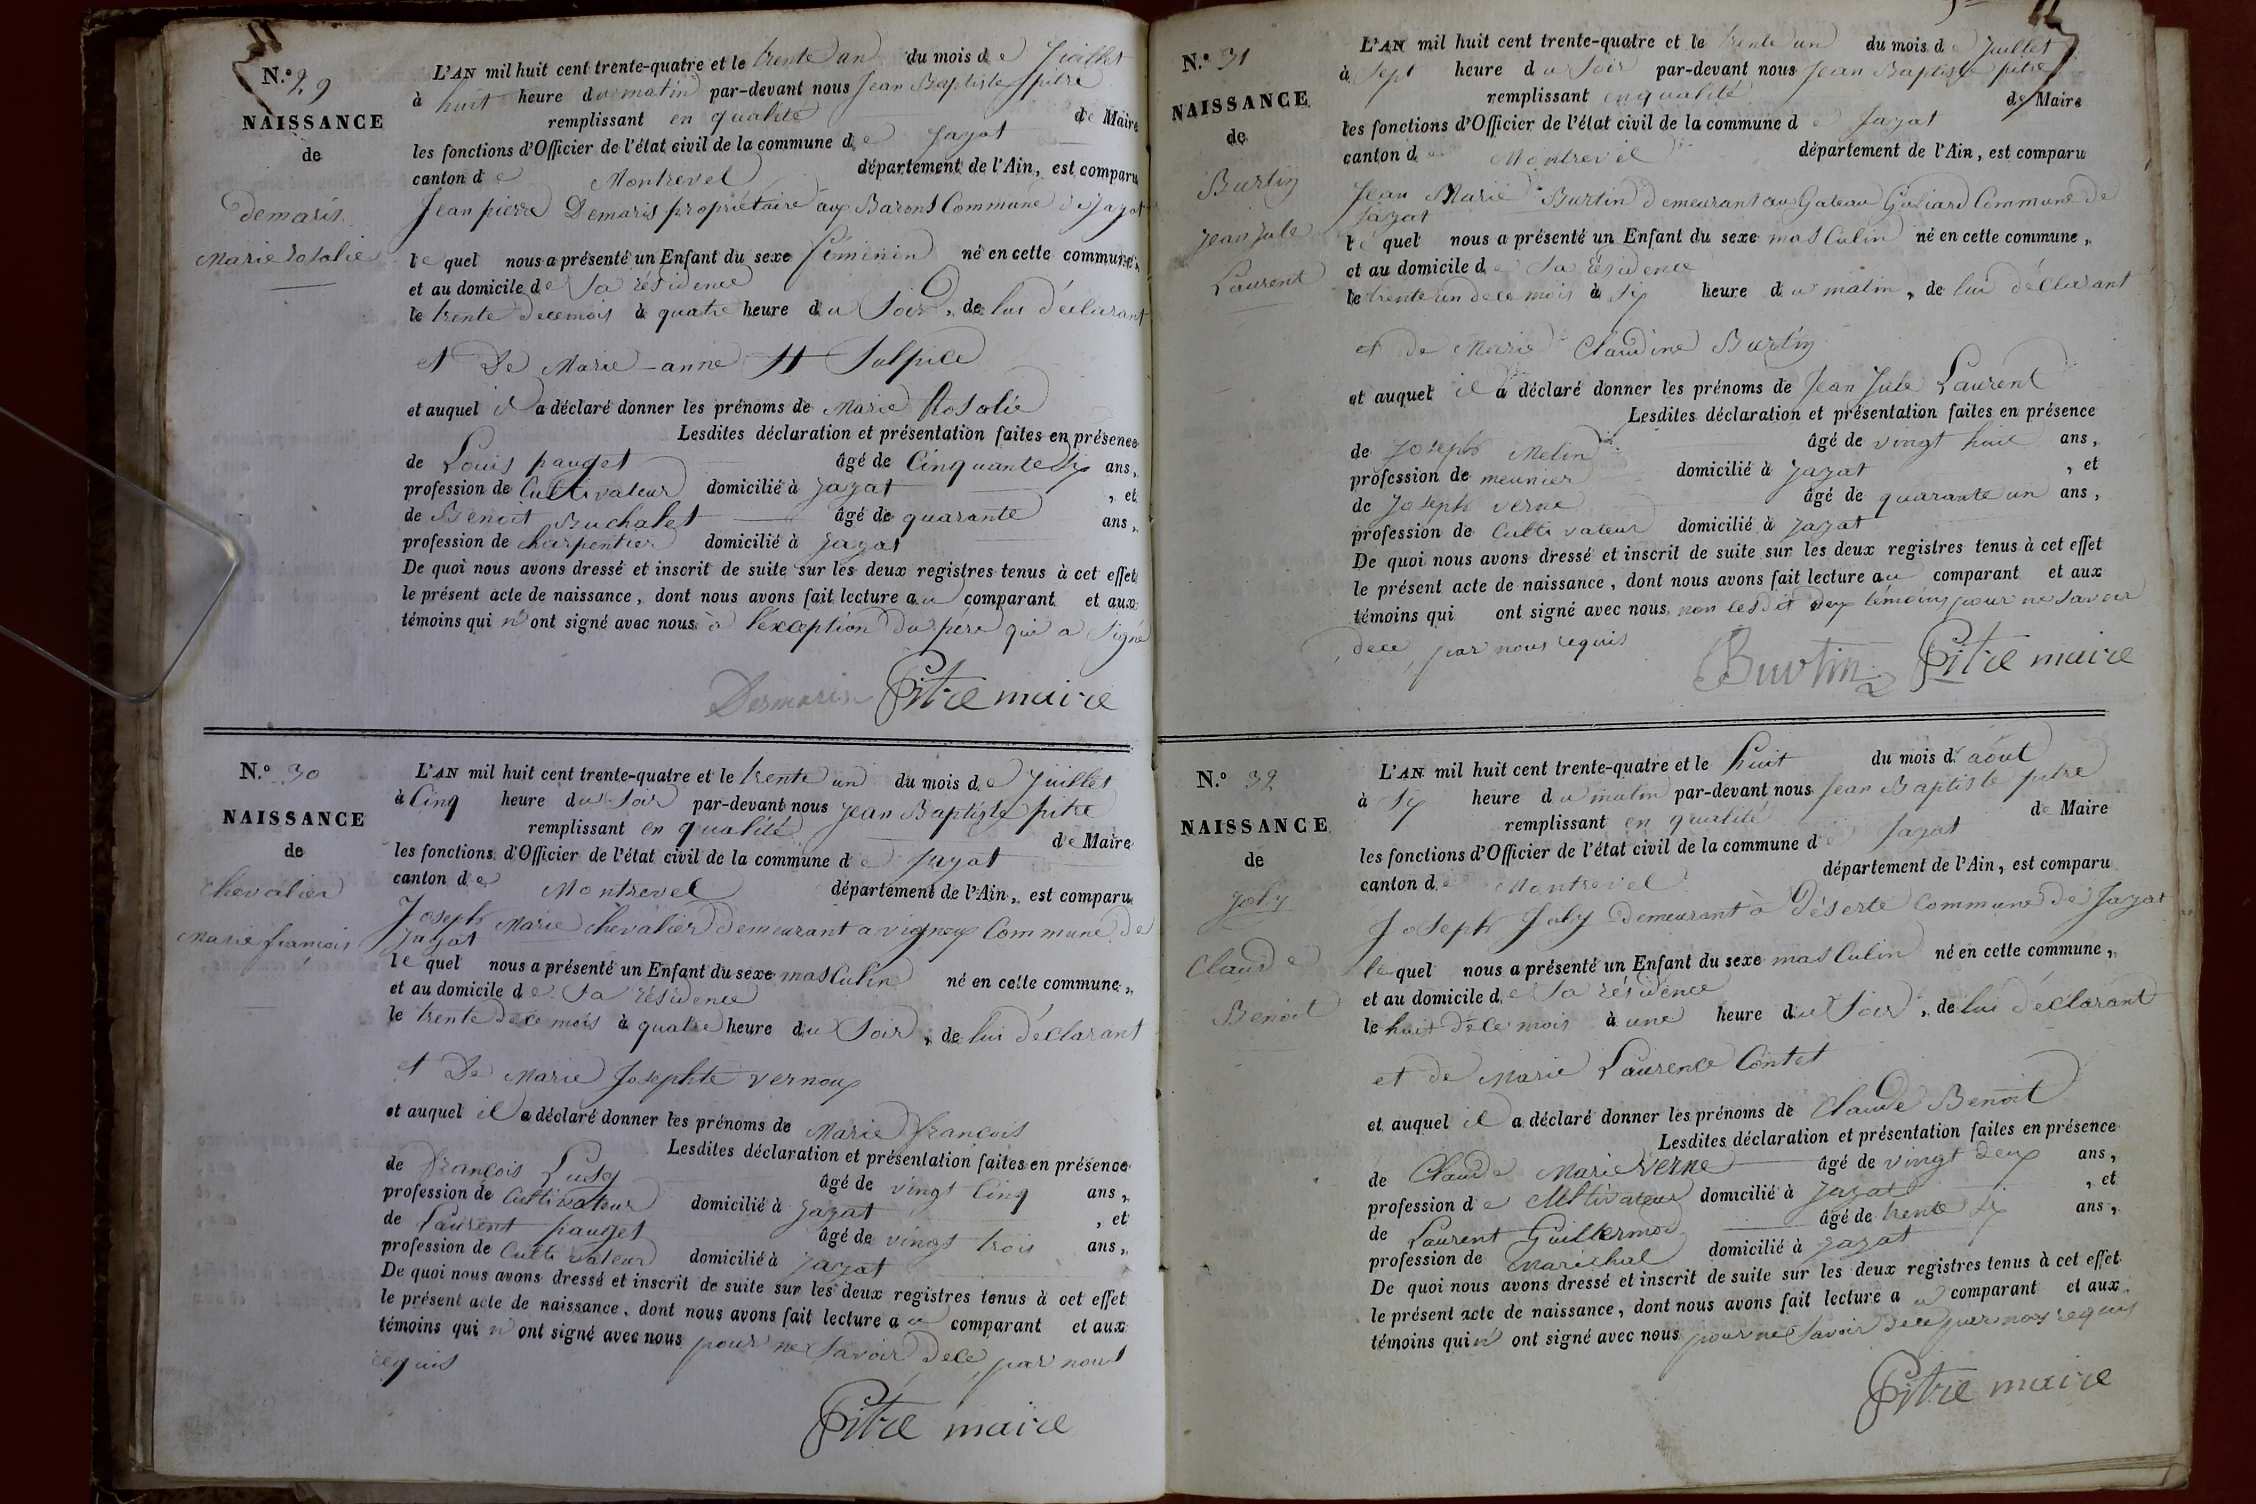 N.º 29
NAISSANCE
de
Demaris
Marie rosalie
L'AN mil huit cent trente-quatre et le trente un du mois de Juillet
à huit heure du matin par-devant nous Jean Baptiste pitre
remplissant en qualité de Maire
les fonctions d'Officier de l'état civil de la commune de Jayat
canton de Montrevel département de l'Ain, est comparu
Jean pierre Demaris propriétaire aux Barons Commune de Jayat
le quel nous a présenté un Enfant du sexe féminin né en cette commune,
et au domicile de Sa résidence
le trente de ce mois à quatre heure du Soir, de lui déclarant
et De Marie-anne St Sulpice
et auquel il a déclaré donner les prénoms de Marie Rosalie
Lesdites déclaration et présentation faites en présence
de Louis pauget âgé de Cinquante Six ans,
profession de Cultivateur domicilié à Jayat, et
de Benoit Buchalet âgé de quarante ans,
profession de charpentier domicilié à Jayat
De quoi nous avons dressé et inscrit de suite sur les deux registres tenus à cet effet
le présent acte de naissance, dont nous avons fait lecture au comparant et aux
témoins qui n'ont signé avec nous à l'exception du pere qui a Signé
Desmaris Pitre maire
N.º 30
NAISSANCE
de
chevalier
Marie françois
L'AN mil huit cent trente-quatre et le trente un du mois de Juillet
à Cinq heure du Soir par-devant nous Jean Baptiste pitre
remplissant en qualité de Maire
les fonctions d'Officier de l'état civil de la commune de Jayat
canton de Montrevel département de l'Ain, est comparu
Joseph Marie chevalier demeurant a vignoux Commune de
Jayat
le quel nous a présenté un Enfant du sexe masculin né en cette commune,
et au domicile de Sa résidence
le trente de ce mois à quatre heure du Soir, de lui déclarant
et De Marie Josephte vernoux
et auquel il a déclaré donner les prénoms de Marie françois
Lesdites déclaration et présentation faites en présence
de François âgé de vingt Cinq ans,
profession de Cultivateur domicilié à Jayat, et
de Laurent pauget âgé de vingt trois ans,
profession de Cultivateur domicilié à Jayat
De quoi nous avons dressé et inscrit de suite sur les deux registres tenus à cet effet
le présent acte de naissance, dont nous avons fait lecture au comparant et aux
témoins qui n'ont signé avec nous pour ne Savoir de ce par nous
requis
Pitre maire
N.º 31
NAISSANCE
de
Burtin
Jean Jule
Laurent
L'AN mil huit cent trente-quatre et le trente un du mois de Juillet
à Sept heure du Soir par-devant nous Jean Baptiste pitre
remplissant en qualité de Maire
les fonctions d'Officier de l'état civil de la commune de Jayat
canton de Montrevel département de l'Ain, est comparu
Jean Marie Burtin demeurant au Commune de
Jayat
le quel nous a présenté un Enfant du sexe masculin né en cette commune,
et au domicile de Sa résidence
le trente un de ce mois à Six heure du matin, de lui déclarant
et de Marie Claudine Burtin
et auquel il a déclaré donner les prénoms de Jean Jule Laurent
Lesdites déclaration et présentation faites en présence
de Joseph Melin âgé de vingt huit ans,
profession de meunier domicilié à Jayat, et
de Joseph verne âgé de quarante un ans,
profession de Cultivateur domicilié à Jayat
De quoi nous avons dressé et inscrit de suite sur les deux registres tenus à cet effet
le présent acte de naissance, dont nous avons fait lecture au comparant et aux
témoins qui ont signé avec nous non lesdit deux témoins pour ne Savoir
de ce par nous requis
Burtin Pitre maire
N.º 32
NAISSANCE
de
Joly
Claude
Benoit
L'AN mil huit cent trente-quatre et le huit du mois d'août
à Six heure du matin par-devant nous Jean Baptiste pitre
remplissant en qualité de Maire
les fonctions d'Officier de l'état civil de la commune de Jayat
canton de Montrevel département de l'Ain, est comparu
Joseph Joly Demeurant à Déserte Commune de Jayat
le quel nous a présenté un Enfant du sexe masculin né en cette commune,
et au domicile de Sa résidence
le huit de ce mois à une heure du Soir, de lui déclarant
et de Marie Laurence Contet
et auquel il a déclaré donner les prénoms de Claude Benoit
Lesdites déclaration et présentation faites en présence
de Claude Marie Verne âgé de vingt deux ans,
profession de Cultivateur domicilié à Jayat, et
de Laurent Guillermod âgé de trente Six ans,
profession de Maréchal domicilié à Jayat
De quoi nous avons dressé et inscrit de suite sur les deux registres tenus à cet effet
le présent acte de naissance, dont nous avons fait lecture au comparant et aux
témoins qui n'ont signé avec nous pour ne Savoir de ce par nous requis
Pitre maire